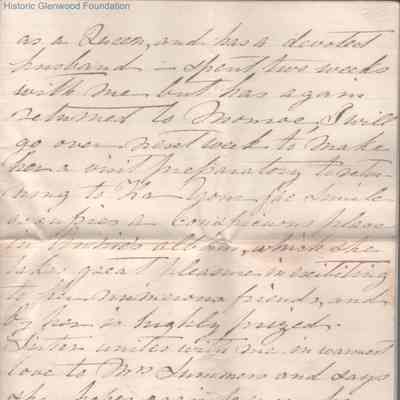 Historic Glenwood Foundation
as a Queen, and has a devoted
husband - spent two weeks
with me but has again
returned to Monroe, I will
go over next week to make
her a visit preparatory to retur-
ning to Ka Your fac simile
occupies a conspicuous place
in album, which she
takes great pleasure in exibiting
to her numerous friends, and
by her is highly prized.
Sister unites with me in warmest
love to Mrs Summers and says
she hopes again